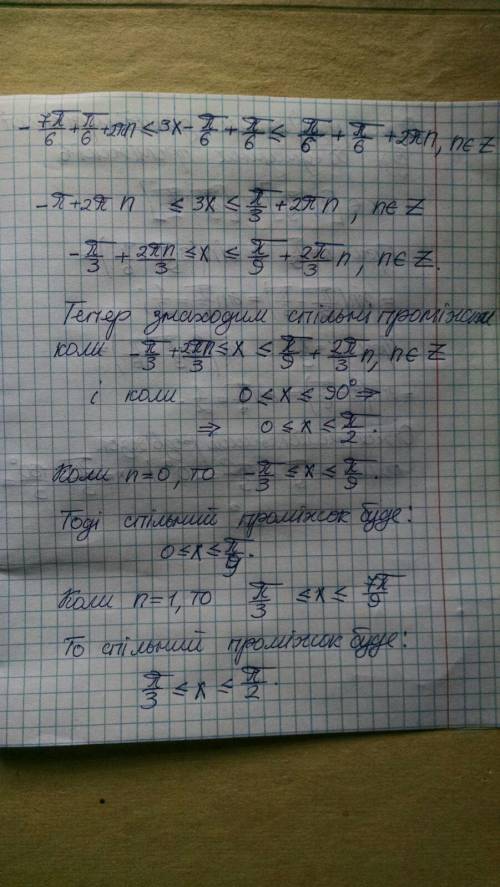 - 7π/6 + π/6 + 2πn ≤ 3x - π/6 + π/6 ≤ π/6 + π/6 + 2πn, n∈Z
-π+2πn ≤ 3x ≤ π/3 + 2πn, n∈Z
-π/3 + 2πn/3 ≤ x ≤ π/9 + 2π/3 n, n∈Z.
Тепер знаходим спільні проміжки
коли -π/3 + 2πn/3 ≤ x ≤ π/9 + 2π/3 n, n∈Z
і коли 0 ≤ x ≤ 90° ⇒
⇒ 0 ≤ x ≤ π/2.
Коли n=0, то -π/3 ≤ x ≤ π/9.
Тоді спільний проміжок буде:
0 ≤ x ≤ π/9.
Коли n=1, то π/3 ≤ x ≤ 7π/9
То спільний проміжок буде:
π/3 ≤ x ≤ π/2.